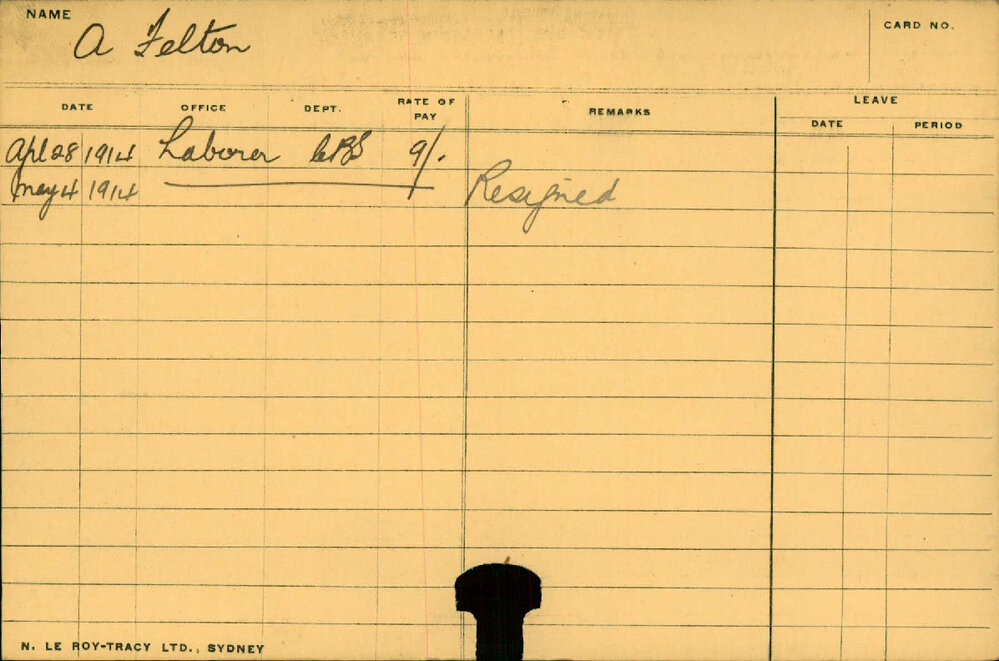 NAME
A Felton
CARD NO.
DATE OFFICE DEPT. RATE OF PAY REMARKS LEAVE
DATE PERIOD
Apl 28 1914 Laborer 9/-
May 4 1914 Resigned
N. LE ROY-TRACY LTD., SYDNEY